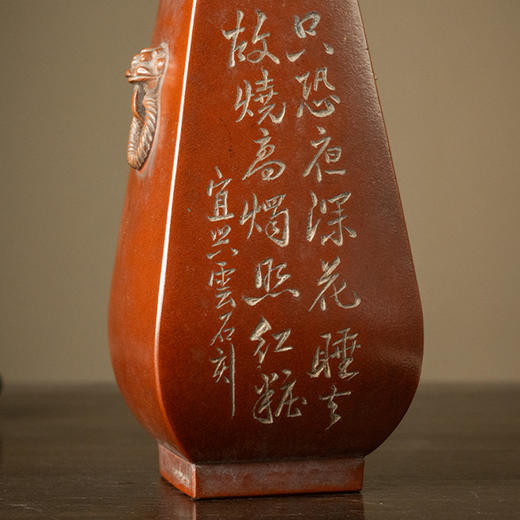 只恐夜深花睡去
故燒高燭照紅糚
宜興雲石刻